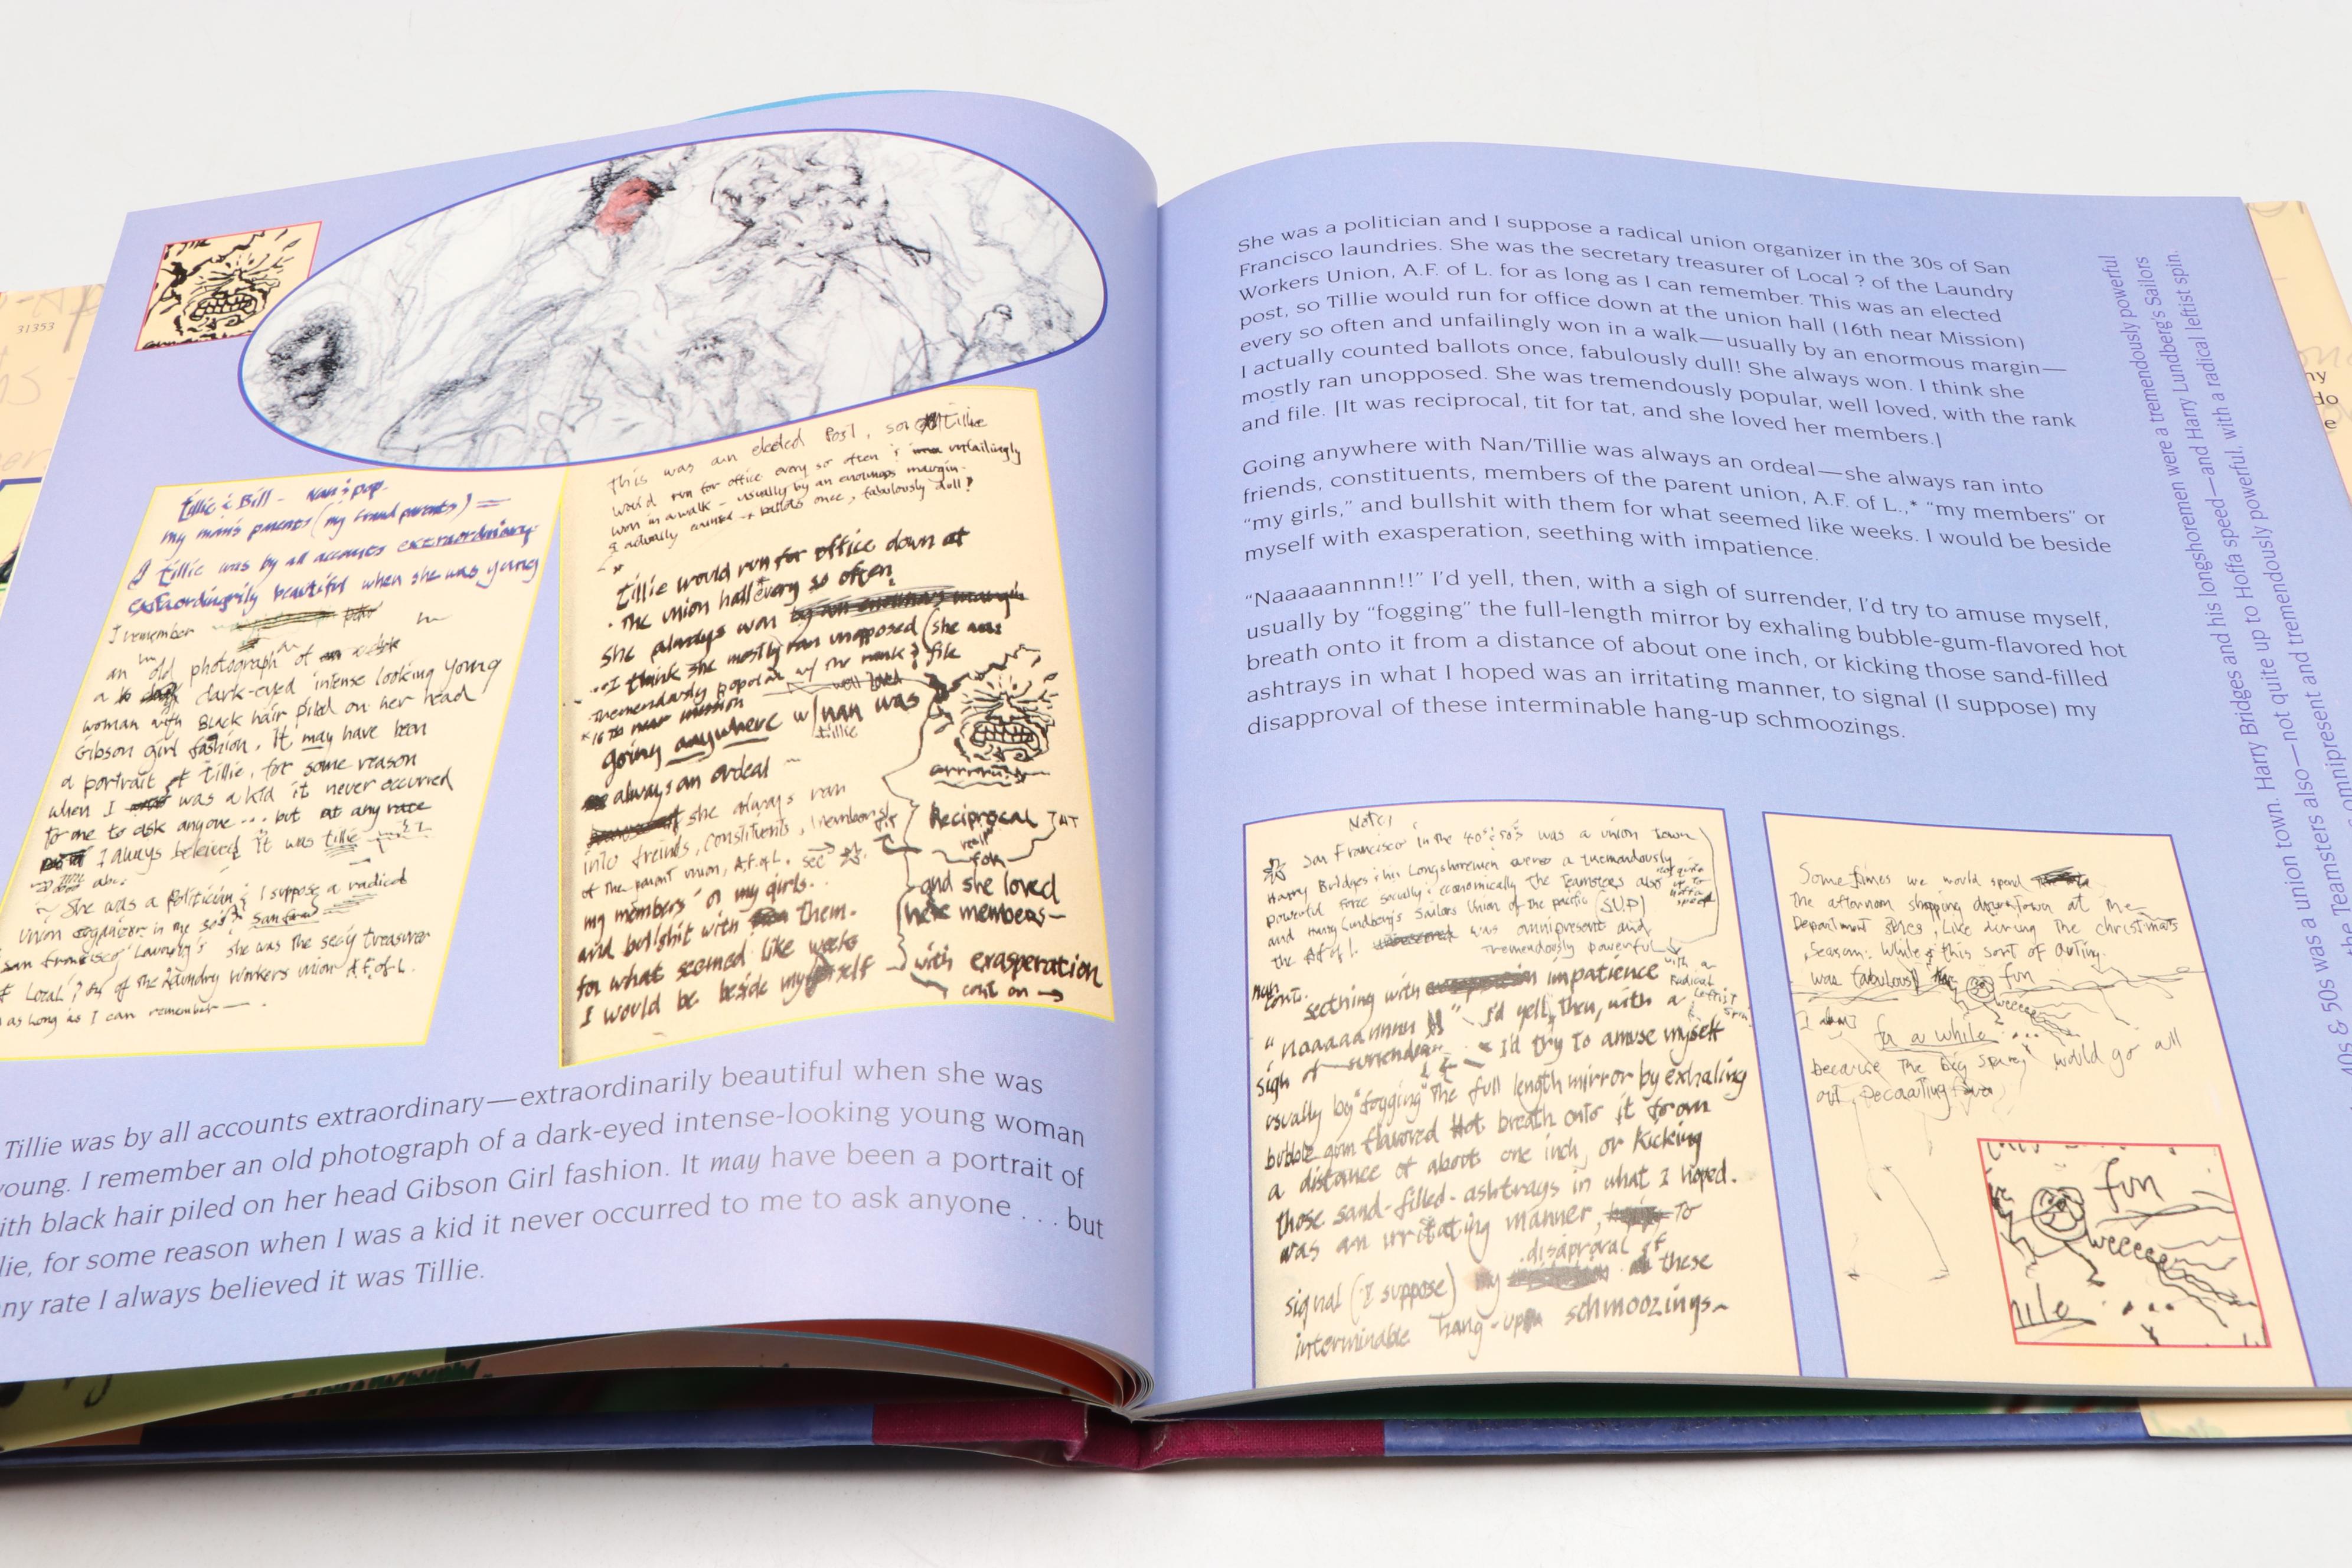 31353
Tillie & Bill - Nan & pop-
my mom's parents (my grand parents) =
Tillie was by all accounts extraordinary
extraordingrily beautiful when she was young
I remember
an old photograph of
a dark-eyed intense looking young
woman with Black hair piled on her head
Gibson girl fashion. It may have been
a portrait of tillie, for some reason
when I was a kid it never occurred
to me to ask anyone ... but at any rate
I always beleived it was tillie
She was a Politician & I suppose a radical
union organizer in the 30s? San fran
San Francisco Laundry's she was the secy treasurer
of Local? of the Laundry workers union A.F. of L.
as long as I can remember —
This was an elected Post, so Tillie
would run for office every so often & unfailingly
won in a walk - usually by an enormous margin-
I actually counted ballots once, fabulously dull!
tillie would run for office down at
the union hall every so often
she always won by an enormous margin
...I think she mostly ran unopposed (she was
tremendously popular w/ the rank & file
well loved
*16th near mission
going anywhere w/nan was
tillie
always an ordeal -
she always ran
into freinds, constituents, members
of the parent union, A.F. of L.
my members" or my girls..
and bullshit with them-
for what seemed like weeks
I would be beside myself
Reciprocal TAT
for
and she loved
her members-
with exasperation
cont on →
Tillie was by all accounts extraordinary—extraordinarily beautiful when she was
young. I remember an old photograph of a dark-eyed intense-looking young woman
ith black hair piled on her head Gibson Girl fashion. It may have been a portrait of
lie, for some reason when I was a kid it never occurred to me to ask anyone . . . but
ny rate I always believed it was Tillie.
She was a politician and I suppose a radical union organizer in the 30s of San
Francisco laundries. She was the secretary treasurer of Local ? of the Laundry
Workers Union, A.F. of L. for as long as I can remember. This was an elected
post, so Tillie would run for office down at the union hall (16th near Mission)
every so often and unfailingly won in a walk—usually by an enormous margin—
I actually counted ballots once, fabulously dull! She always won. I think she
mostly ran unopposed. She was tremendously popular, well loved, with the rank
and file. [It was reciprocal, tit for tat, and she loved her members.]
Going anywhere with Nan/Tillie was always an ordeal—she always ran into
friends, constituents, members of the parent union, A.F. of L.,* "my members" or
"my girls," and bullshit with them for what seemed like weeks. I would be beside
myself with exasperation, seething with impatience.
"Naaaaannnn!!" I'd yell, then, with a sigh of surrender, I'd try to amuse myself,
usually by "fogging" the full-length mirror by exhaling bubble-gum-flavored hot
breath onto it from a distance of about one inch, or kicking those sand-filled
ashtrays in what I hoped was an irritating manner, to signal (I suppose) my
disapproval of these interminable hang-up schmoozings.
Note;
San Francisco in the 40s & 50's was a union town
Harry Bridges & his Longshoremen were a tremendously
powerful force socially & economically the Teamsters also
not quite up to Hoffa speed
and Harry Lundberg's Sailors Union of the pacific (S.U.P)
the AF of L. was omnipresent and
tremendously powerful
with a Radical Leftist spin.
nan cont.
seething with impatience
"naaaaannnn !!" I'd yell, then, with a
sigh of surrender - I'd try to amuse myself
usually by "fogging" the full length mirror by exhaling
bubble gum flavored Hot breath onto it from
a distance of about one inch, or kicking
those sand-filled-ashtrays in what I hoped.
was an irritating manner, to
signal (I suppose) my disaproval of these
interminable hang-up schmoozings-
Sometimes we would spend
the afternoon shopping downtown at the
Department stores, Like during the christmas
Season. While this sort of outing
was fabulous fun
weeeee
for a while ....
because the big sparey would go all
out, Decorating
fun
weeeeee
hile
40s & 50s was a union town. Harry Bridges and his longshoremen were a tremendously powerful
the Teamsters also—not quite up to Hoffa speed—and Harry Lundberg's Sailors
omnipresent and tremendously powerful, with a radical leftist spin.
ny
do
e